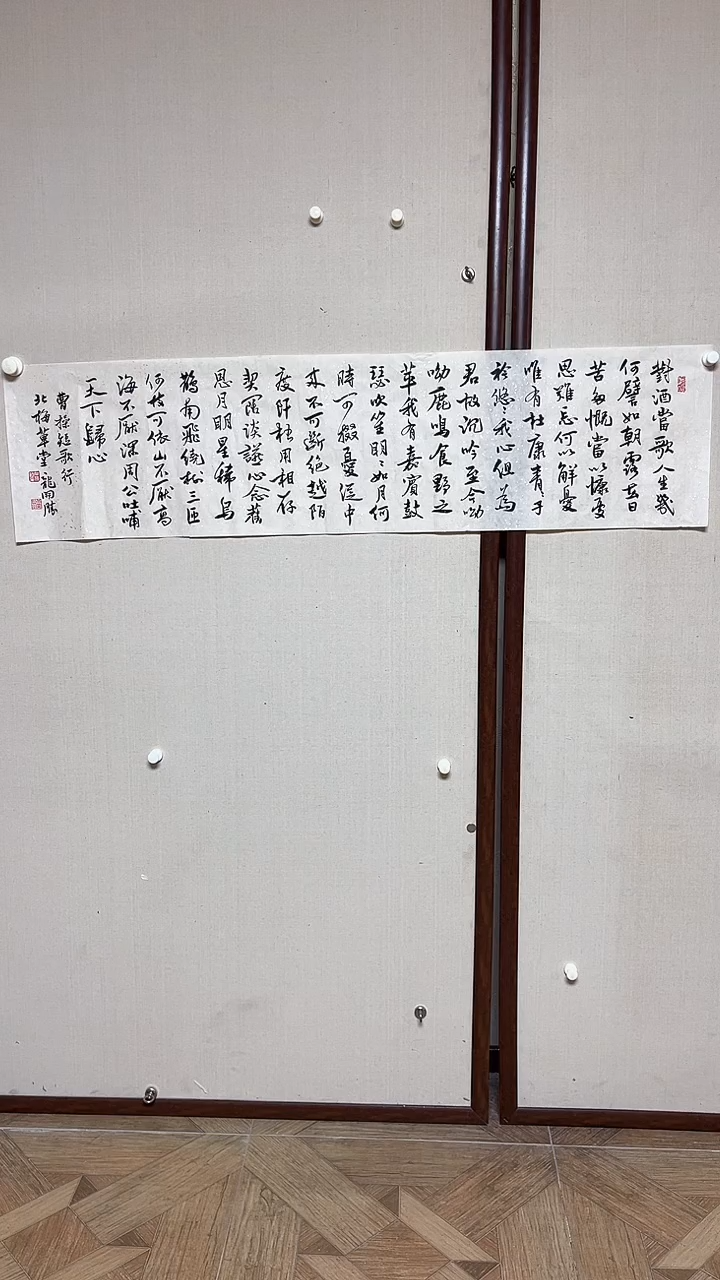 對酒當歌人生幾
何譬如朝露去日
苦多慨當以慷憂
思難忘何以解憂
唯有杜康青〻子
衿悠〻我心但為
君故沉吟至今呦
呦鹿鳴食野之
苹我有嘉賓鼓
瑟吹笙明〻如月何
時可掇憂從中
來不可斷絕越陌
度阡枉用相存
契闊談讌心念舊
恩月明星稀烏
鵲南飛繞樹三匝
何枝可依山不厭高
海不厭深周公吐哺
天下歸心
曹操短歌行
北梅草堂龍開勝